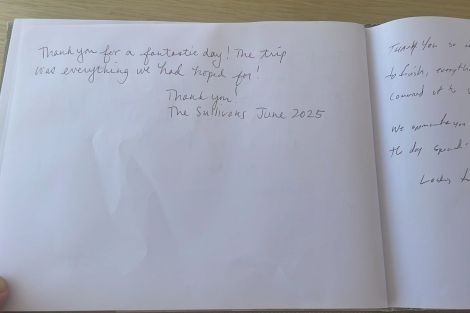 Thank you for a fantastic day! The trip
was everything we had hoped for!
Thank you!
The Sullivans June 2025
Thank you so
to finish, everythi
command of the
We appreciate you
the day speci